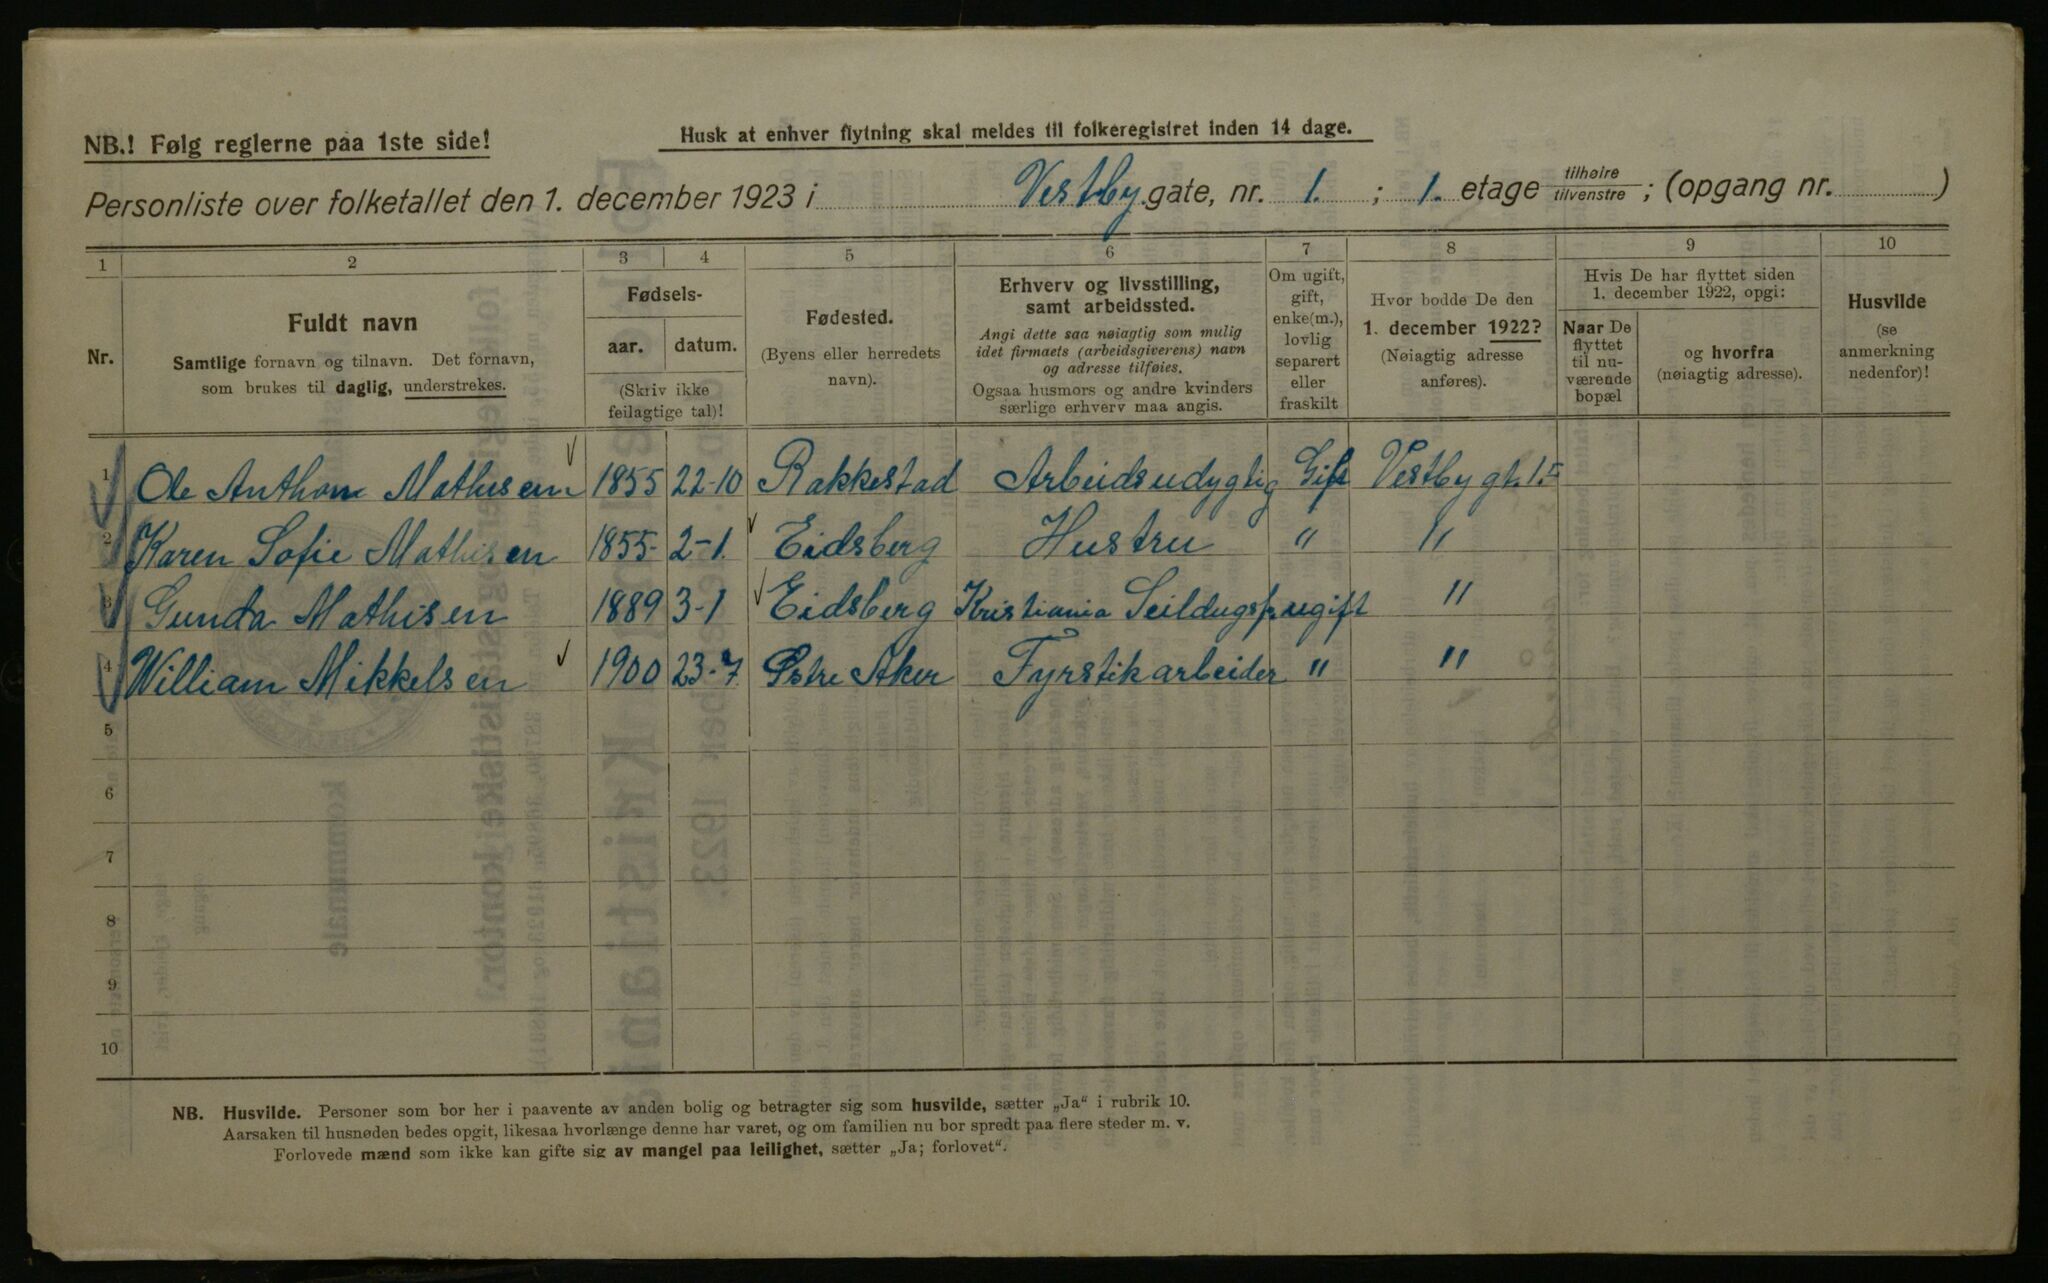 NB.! Følg reglerne paa 1ste side!
Husk at enhver flytning skal meldes til folkeregistret inden 14 dage.
Personliste over folketallet den 1. december 1923 i Vestby gate, nr. 1. ; 1. etage tilhøire tilvenstre ; (opgang nr. )
1 2 3 4 5 6 7 8 9 10
Nr.
Fuldt navn
Samtlige fornavn og tilnavn. Det fornavn,
som brukes til daglig, understrekes.
Fødsels-
aar. datum.
(Skriv ikke
feilagtige tal)!
Fødested.
(Byens eller herredets
navn).
Erhverv og livsstilling,
samt arbeidssted.
Angi dette saa nøiagtig som mulig
idet firmaets (arbeidsgiverens) navn
og adresse tilføies.
Ogsaa husmors og andre kvinders
særlige erhverv maa angis.
Om ugift,
gift,
enke(m.),
lovlig
separert
eller
fraskilt
Hvor bodde De den
1. december 1922?
(Nøiagtig adresse
anføres).
Hvis De har flyttet siden
1. december 1922, opgi:
Naar De
flyttet
til nu-
værende
bopæl
og hvorfra
(nøiagtig adresse).
Husvilde
(se
anmerkning
nedenfor)!
1 Ole Anthon Mathisen 1855 22-10 Rakkestad Arbeidsudygtig Gift Vestby gt. 1.I
2 Karen Sofie Mathisen 1855- 2-1. Eidsberg Hustru " "
3 Gunda Mathisen 1889 3-1 Eidsberg Kristiania Seildugsf. ugift "
4 William Mikkelsen 1900 23-7 Østre Aker Fyrstikarbeider " "
5
6
7
8
9
10
NB. Husvilde. Personer som bor her i paavente av anden bolig og betragter sig som husvilde, sætter „Ja“ i rubrik 10.
Aarsaken til husnøden bedes opgit, likesaa hvorlænge denne har varet, og om familien nu bor spredt paa flere steder m. v.
Forlovede mænd som ikke kan gifte sig av mangel paa leilighet, sætter „Ja; forlovet“.